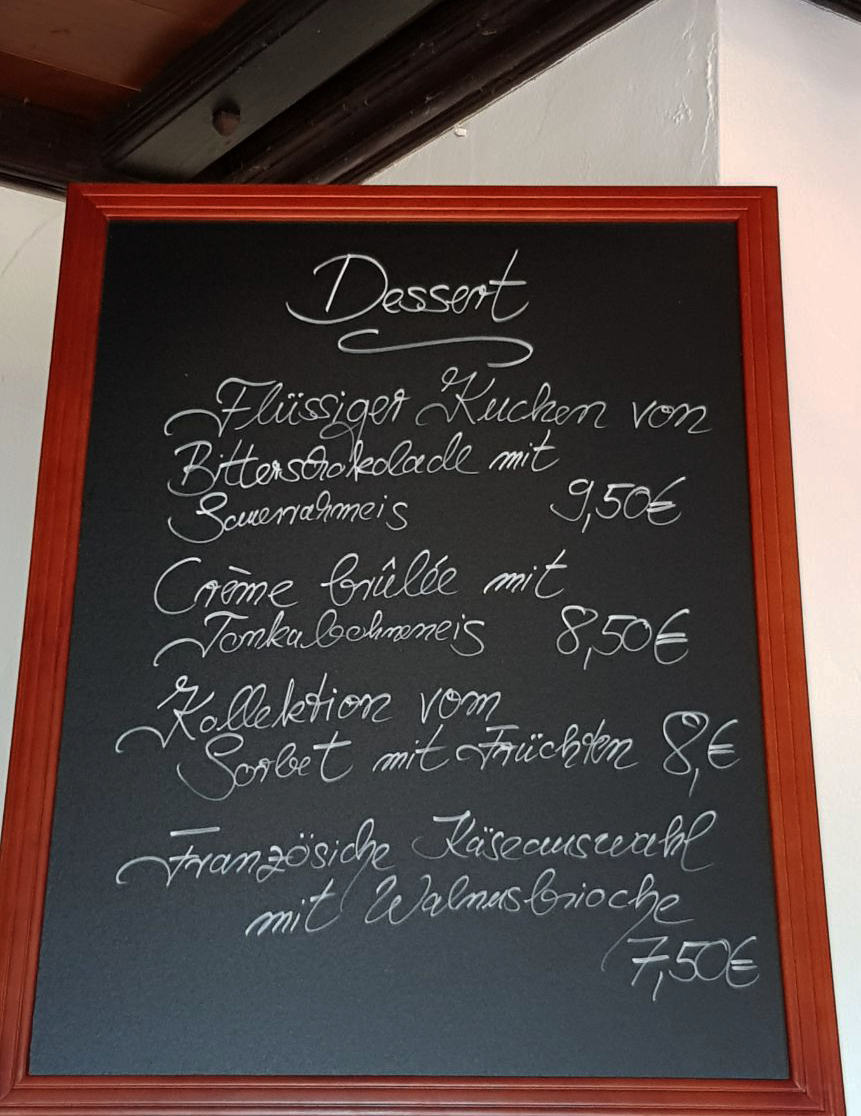 Dessert
Flüssiger Kuchen von
Bitterschokolade mit
Sauerrahmeis 9,50€
Crème brûlée mit
Tonkabohneneis 8,50€
Kollektion vom
Sorbet mit Früchten 8,€
Französiche Käseauswahl
mit Walnusbrioche
7,50€